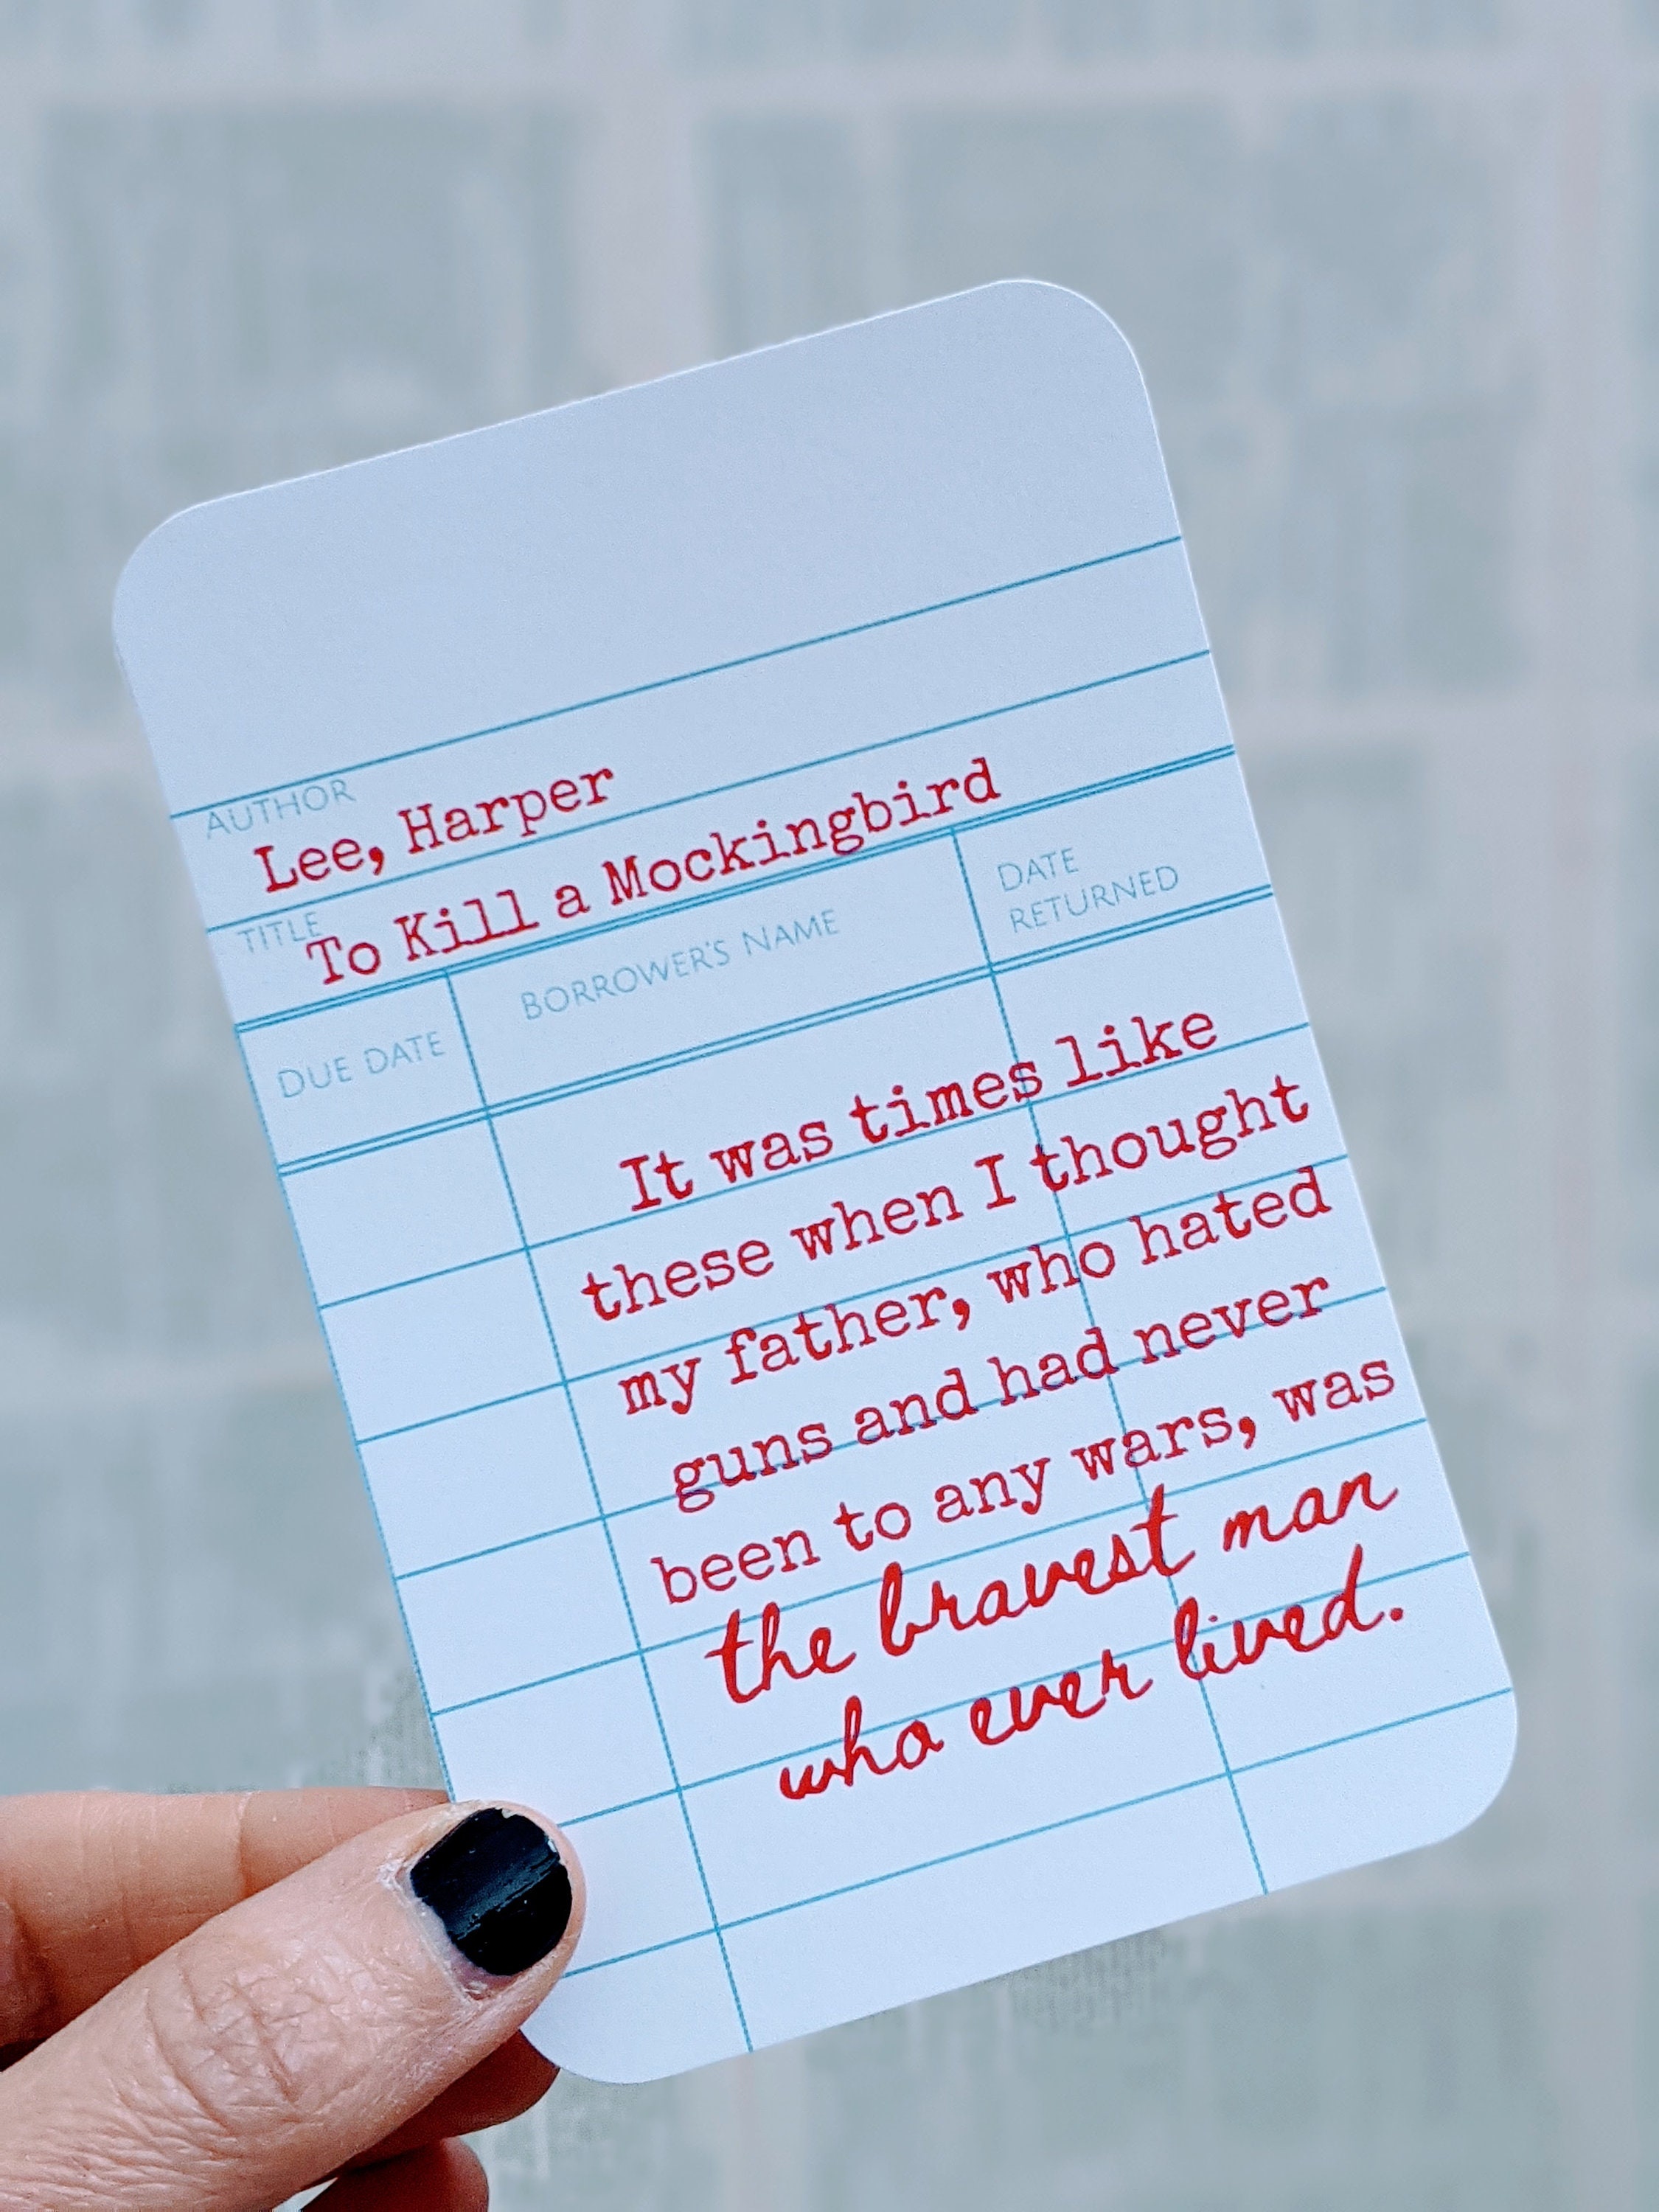 AUTHOR
Lee, Harper
TITLE
To Kill a Mockingbird
DUE DATE
BORROWER'S NAME
DATE
RETURNED
It was times like
these when I thought
my father, who hated
guns and had never
been to any wars, was
the bravest man
who ever lived.